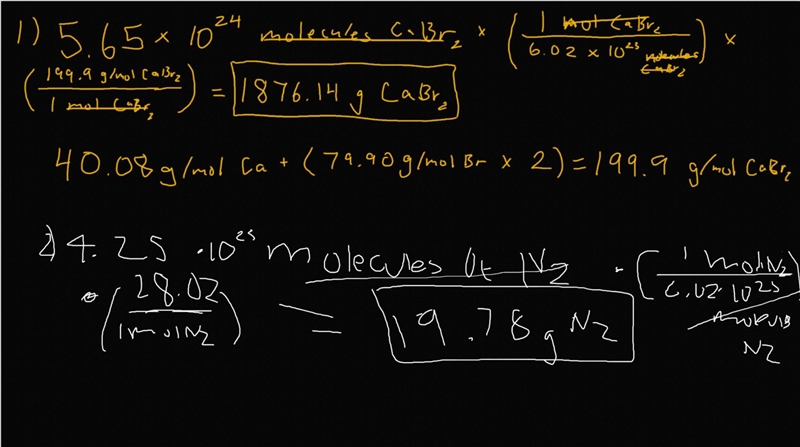 1) 5.65 × 10²⁴ molecules CaBr₂ × (1 mol CaBr₂ / 6.02 × 10²³ molecules CaBr₂) ×
(199.9 g/mol CaBr₂ / 1 mol CaBr₂) = 1876.14 g CaBr₂
40.08 g/mol Ca + (79.90 g/mol Br × 2) = 199.9 g/mol CaBr₂
2) 4.25 · 10²³ molecules of N₂ · (1 mol N₂ / 6.02 · 10²³ molecules N₂)
· (28.02 / 1 mol N₂) = 19.78 g N₂